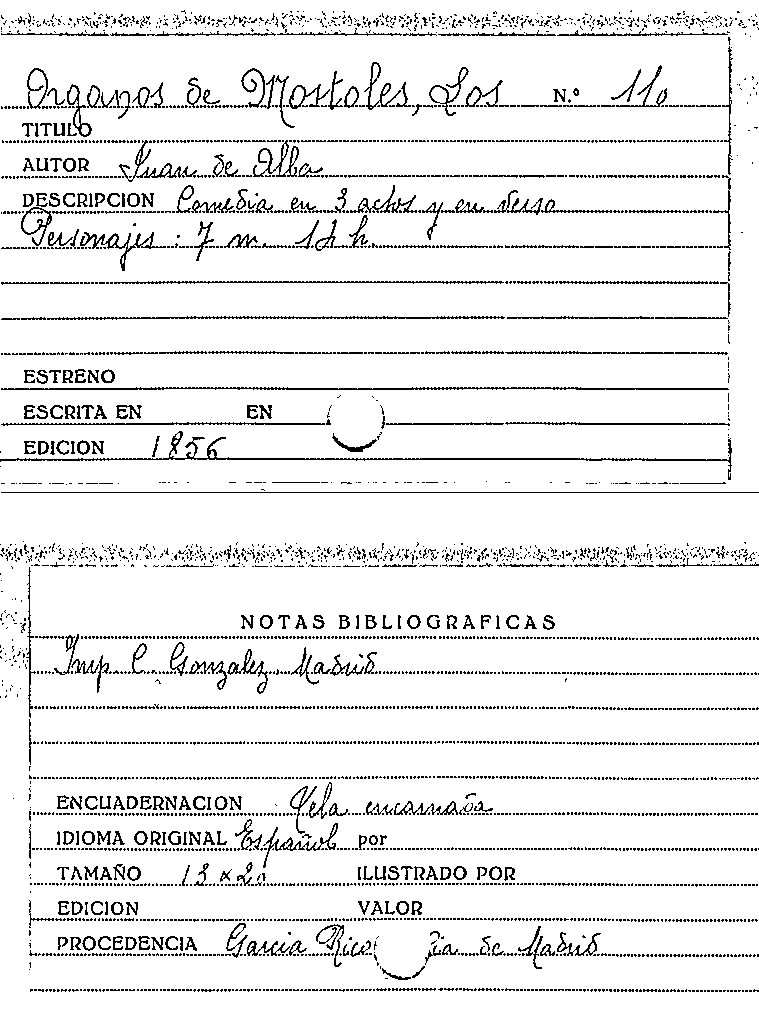 Organos de Mostoles, Los N.º 110
TITULO
AUTOR Juan de Alba
DESCRIPCION Comedia en 3 actos y en verso
Personajes : 7 m. 14 h.
ESTRENO
ESCRITA EN EN
EDICION 1856
NOTAS BIBLIOGRAFICAS
Imp. C. Gonzalez. Madrid
ENCUADERNACION Tela encarnada
IDIOMA ORIGINAL Español por
TAMAÑO 13 x 20 ILUSTRADO POR
EDICION VALOR
PROCEDENCIA Garcia Rico de Madrid